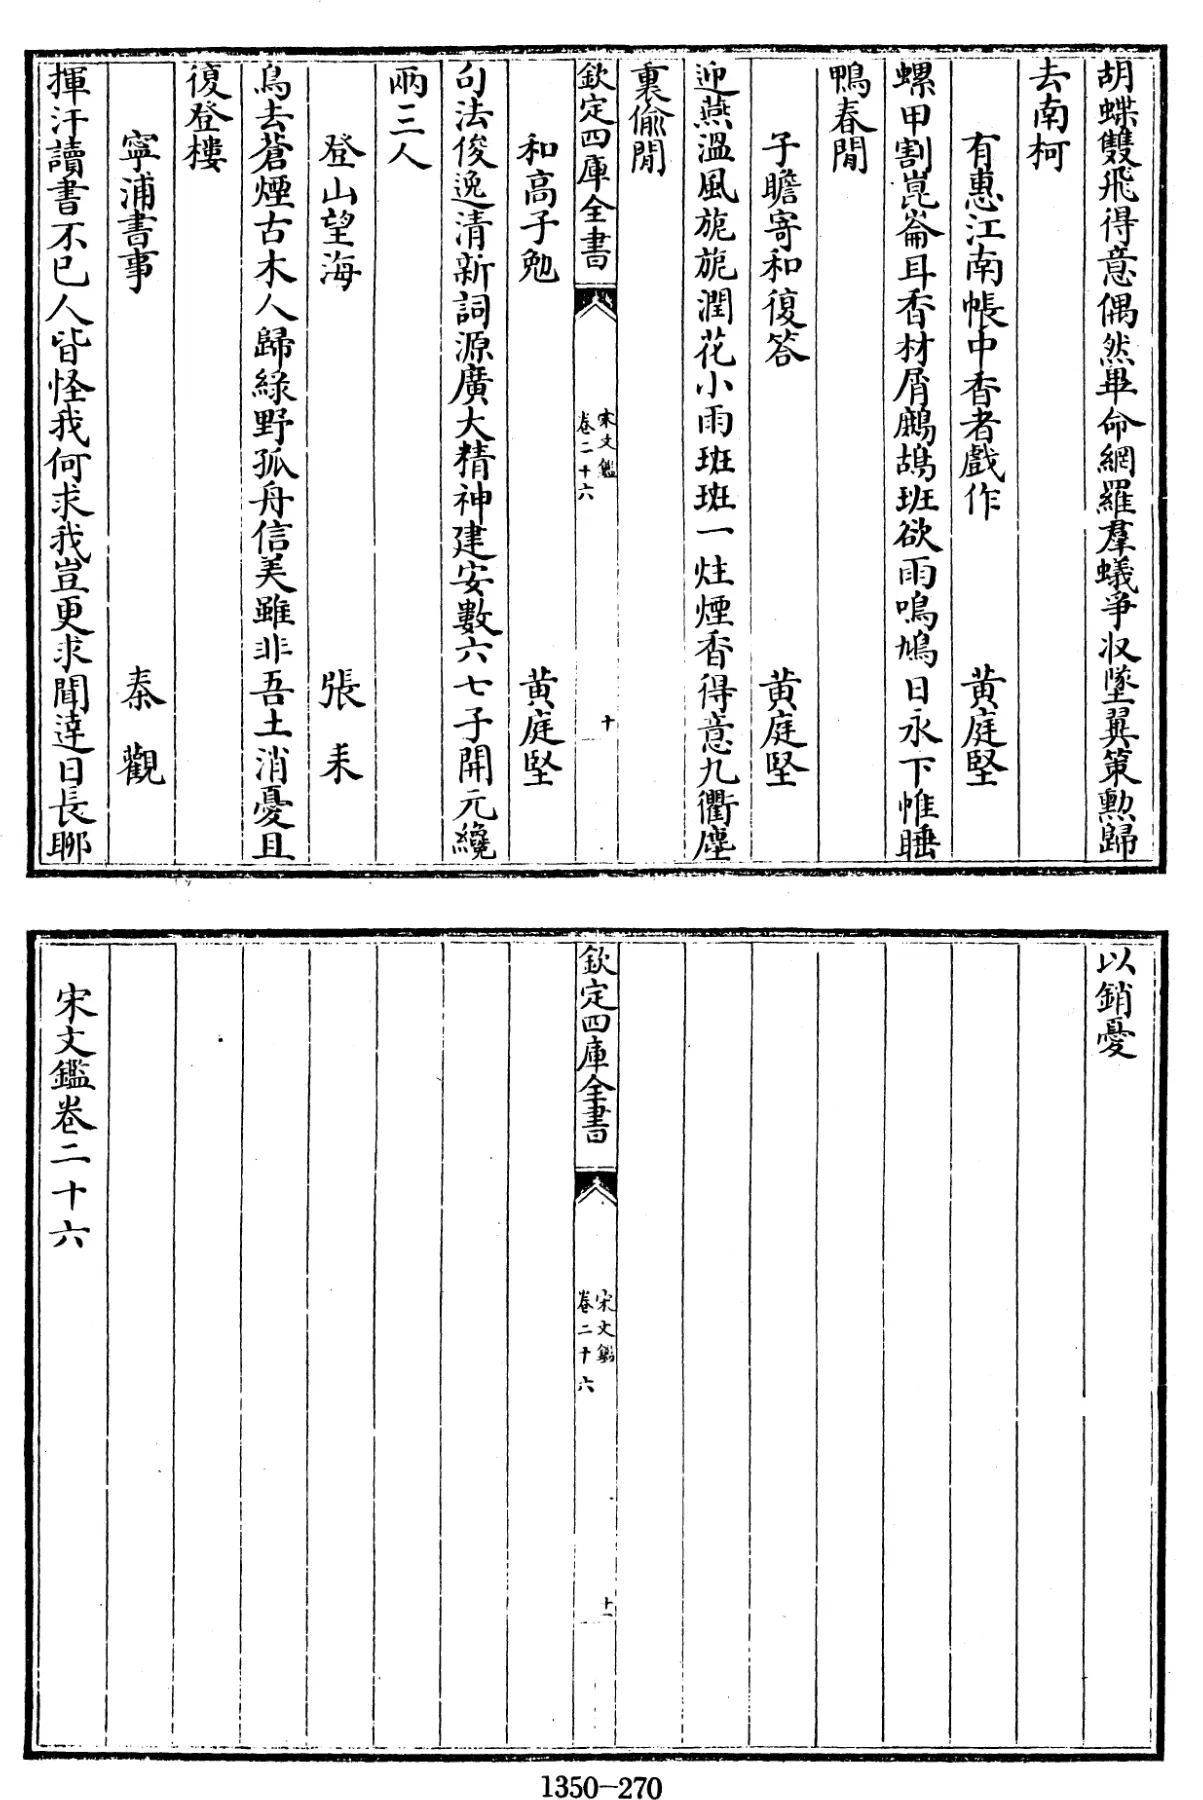 胡蝶雙飛得意偶然畢命網羅羣蟻爭収墜翼策勲歸
去南柯
有惠江南帳中香者戲作 黄庭堅
螺甲割崑崙耳香材屑鷓鴣班欲雨鳴鳩日永下帷睡
鴨春閒
子瞻寄和復答 黄庭堅
迎燕溫風旎旎潤花小雨班班一炷煙香得意九衢塵
裏偷閒
欽定四庫全書
宋文鑑
卷二十六
十
和高子勉 黄庭堅
句法俊逸清新詞源廣大精神建安數六七子開元纔
兩三人
登山望海 張耒
鳥去蒼煙古木人歸綠野孤舟信美雖非吾土消憂且
復登樓
寧浦書事 秦觀
揮汗讀書不已人皆怪我何求我豈更求聞達日長聊
以銷憂
欽定四庫全書
宋文鑑
卷二十六
十一
宋文鑑卷二十六
1350-270